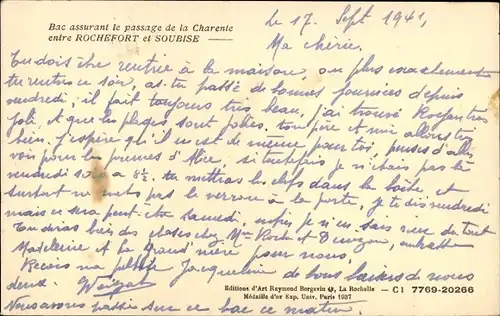 Bac assurant le passage de la Charente
entre ROCHEFORT et SOUBISE
le 17 Sept 1941,
Ma chérie,
Tu dois être rentrée à la maison, ou plus exactement
tu rentres ce soir, as-tu passé de bonnes journées depuis
vendredi, il fait toujours très beau, j'ai trouvé très
joli et que les plages sont jolies, ton père et moi allons très
bien. J'espère qu'il en est de même pour toi, penses d'aller
voir pour les prunes d'Alice, si toutefois je n'étais pas là
vendredi soir à 8½, tu mettras les clefs dans la boîte et
surtout ne mets pas le verrou à la porte, je te dis vendredi
mais ce sera peut-être samedi, enfin je n'en sais rien du tout
Tu diras bien des choses chez Mme et embrasse
Madeleine et la Grand'mère pour nous.
Reçois ma petite Jacqueline de bons baisers de nous
deux.
Nous avons passé sur ce bac ce matin.
Editions d'Art Raymond Bergevin, La Rochelle — C1 7769-20266
Médaille d'or Exp. Univ. Paris 1937